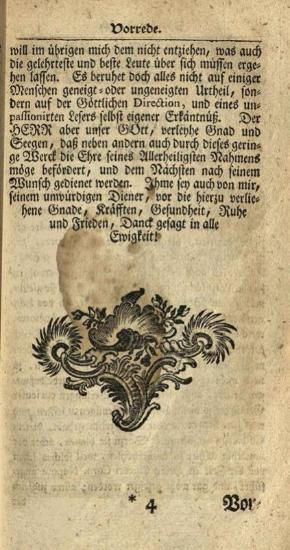 Vorrede.
will im übrigen mich dem nicht entziehen, was auch
die gelehrteste und beste Leute über sich müssen erge-
hen lassen. Es beruhet doch alles nicht auf einiger
Menschen geneigt- oder ungeneigten Urtheil, son-
dern auf der Göttlichen Direction, und eines un-
passionirten Lesers selbst eigener Erkäntnüß. Der
HERR aber unser GOtt, verleyhe Gnad und
Seegen, daß neben andern auch durch dieses gerin-
ge Werck die Ehre seines Allerheiligsten Nahmens
möge befördert, und dem Nächsten nach seinem
Wunsch gedienet werden. Ihme sey auch von mir,
seinem unwürdigen Diener, vor die hierzu verlie-
hene Gnade, Kräfften, Gesundheit, Ruhe
und Frieden, Danck gesagt in alle
Ewigkeit!
* 4
Vor-